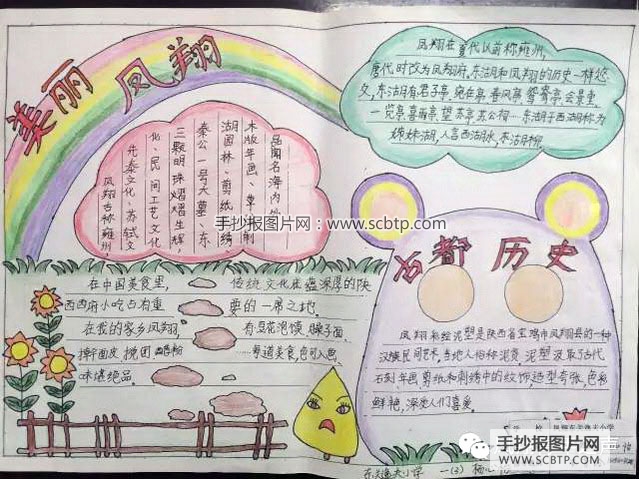 美丽 凤翔
凤翔在唐代以前称雍州,
唐代时改为凤翔府,东湖和凤翔的历史一样悠
久,东湖有君子亭 宛在亭 春风亭 鸳鸯亭 会景堂
一览亭 喜雨亭 望苏亭 苏公祠…东湖与西湖称为
姊妹湖,人言西湖水,东湖柳
凤翔古称雍州,
先秦文化、苏轼文
化、民间工艺文化
三颗明珠熠熠生辉,
秦公一号大墓、东
湖园林、剪纸、绣
木版年画、草制
品闻名海内外
手抄报图片网 www.scbtp.com
古都 历史
在中国美食里, 传统文化底蕴深厚的陕
西西府小吃占有重要的一席之地。
在我的家乡凤翔, 有豆花泡馍 臊子面
擀面皮 搅团 粉 …等道美食,色可入画
味堪绝品。
凤翔彩绘泥塑是陕西省宝鸡市凤翔县的一种
汉族民间艺术,当地人俗称泥货 泥塑汲取了古代
石刻 年画,剪纸和刺绣中的纹饰,造型夸张,色彩
鲜艳,深受人们喜爱。
手抄报图片网
WWW.SCBTP.COM